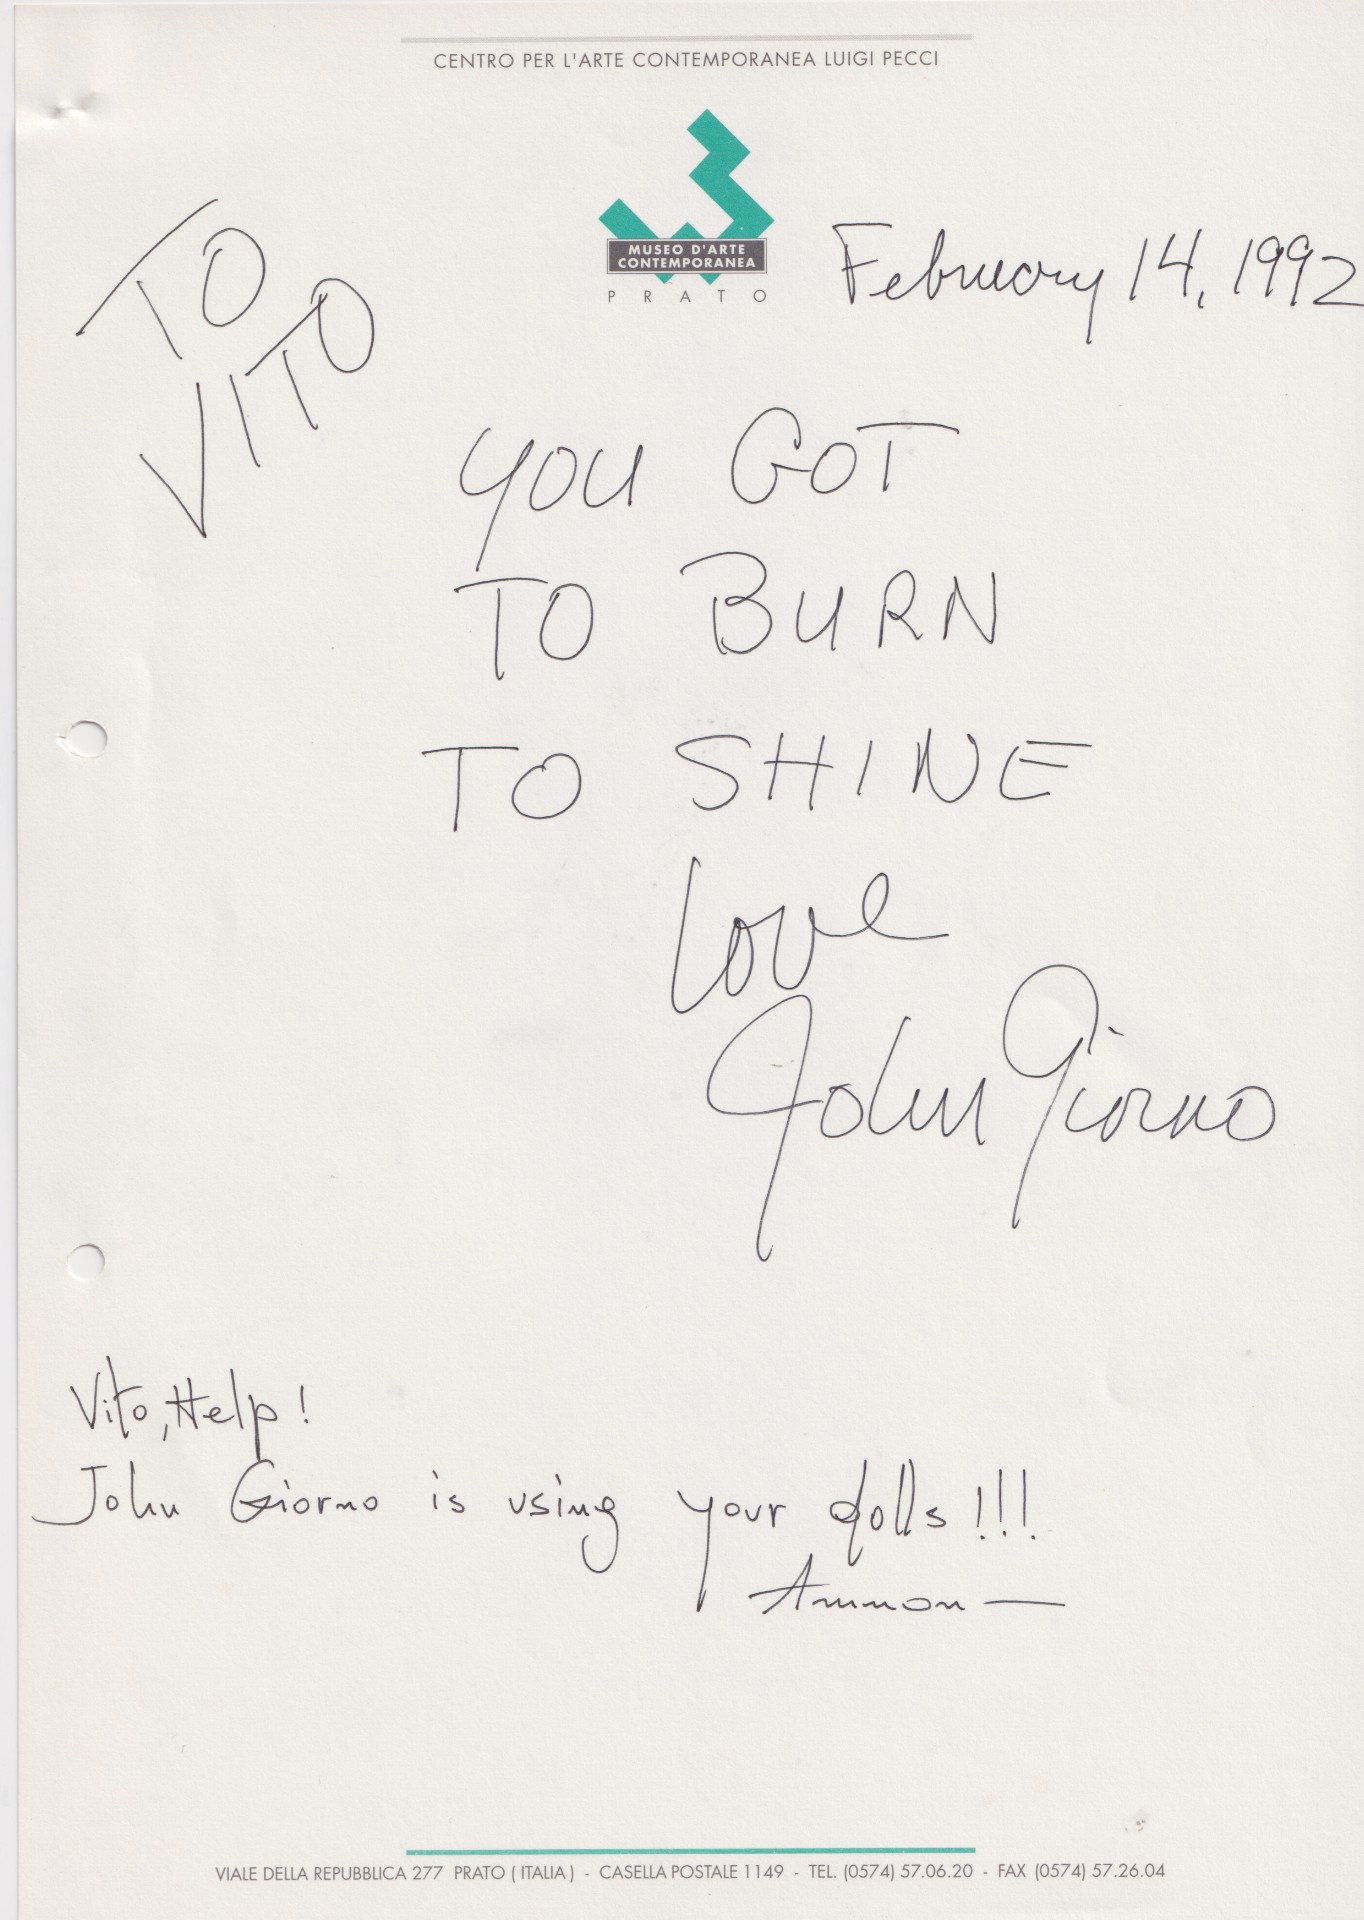 CENTRO PER L'ARTE CONTEMPORANEA LUIGI PECCI
MUSEO D'ARTE
CONTEMPORANEA
PRATO
February 14, 1992
TO
VITO
YOU GOT
TO BURN
TO SHINE
Love
John Giorno
Vito, Help!
John Giorno is using your dolls!!!
Ammon—
VIALE DELLA REPUBBLICA 277 PRATO ( ITALIA ) - CASELLA POSTALE 1149 - TEL. (0574) 57.06.20 - FAX (0574) 57.26.04